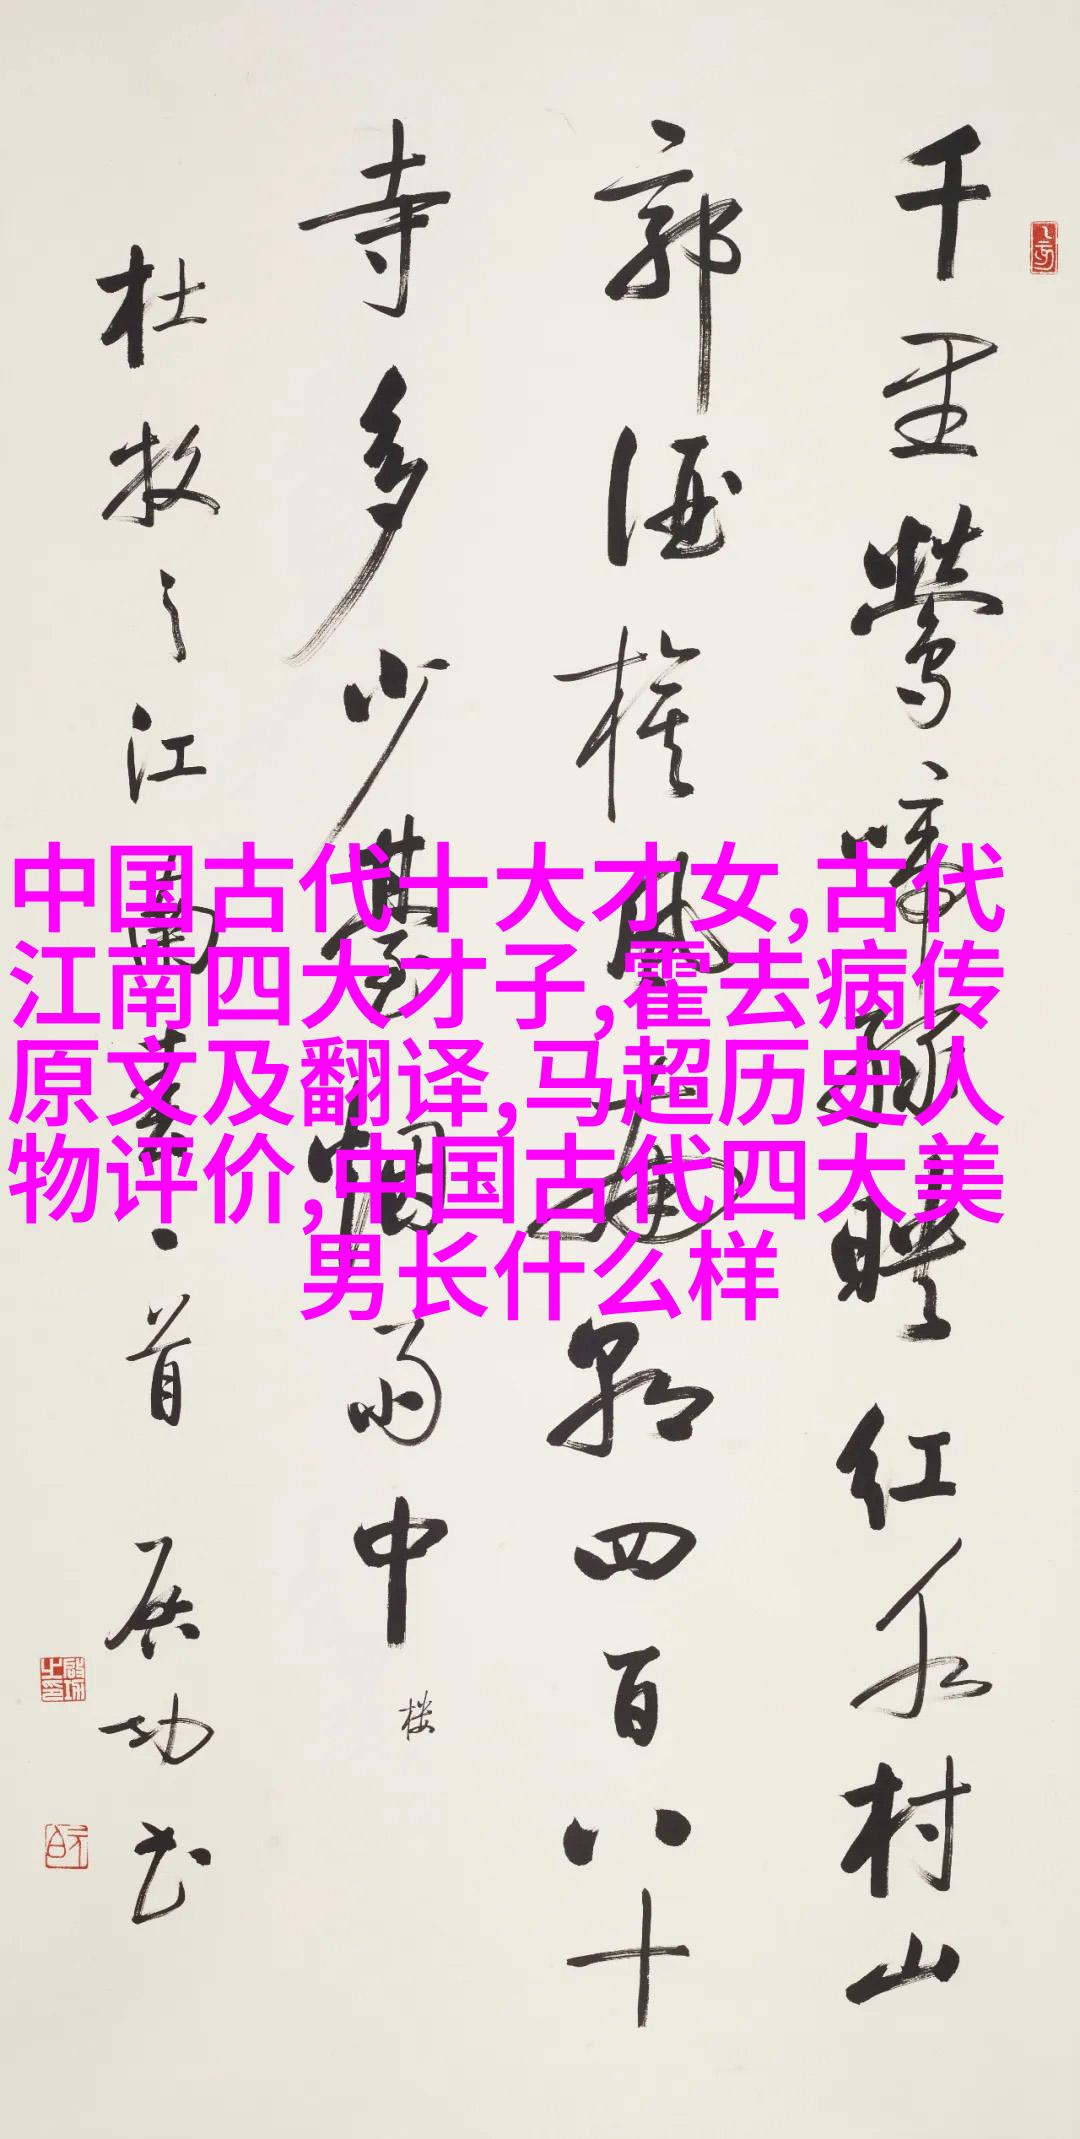 千里鶯啼緑暎紅水村山
郭酒旗風南朝四百八十
寺多少臺烟雨中
楼
杜牧之江南春一首
启功书
中国古代十大才女,古代
江南四大才子,霍去病传
原文及翻译,马超历史人
物评价,中国古代四大美
男长什么样